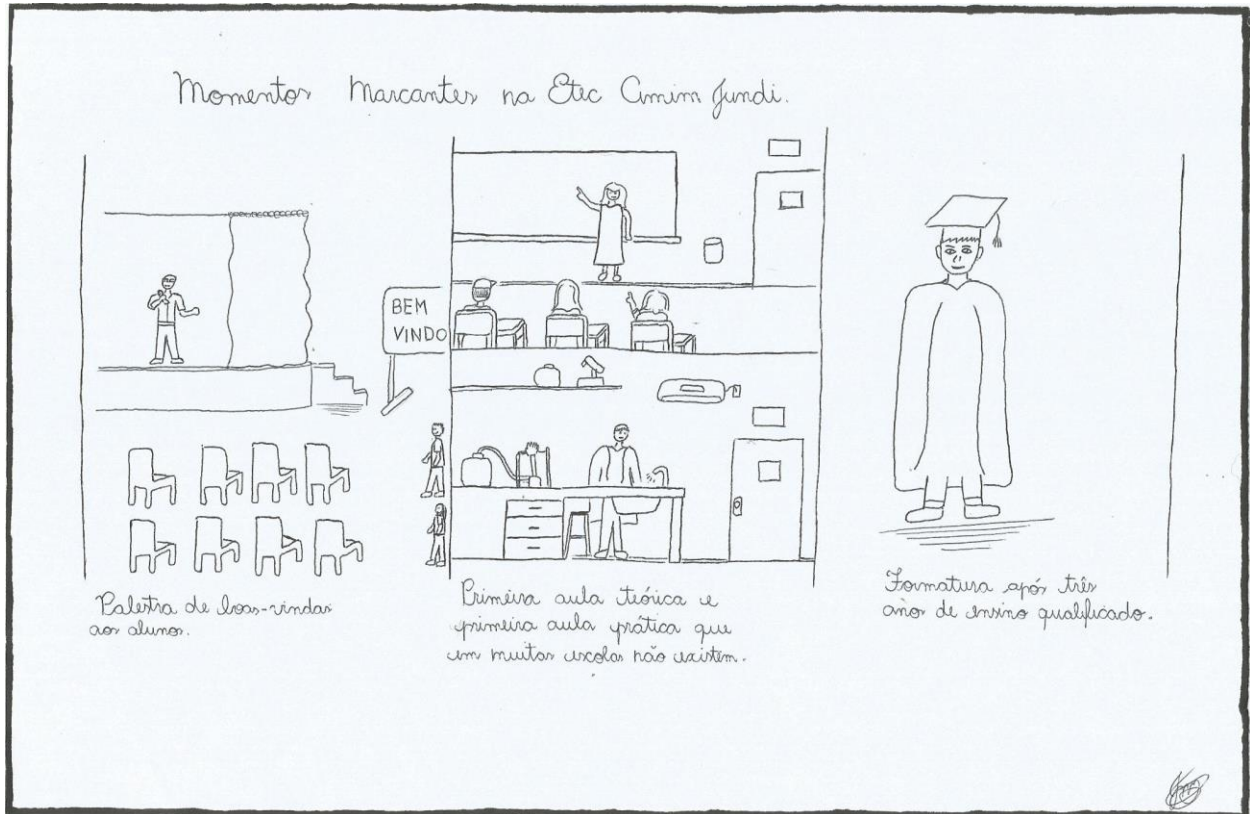 Momentos Marcantes na Etec Amim Jundi.
BEM
VINDO
Palestra de boas-vindas
aos alunos.
Primeira aula teórica e
primeira aula prática que
em muitas escolas não existem.
Formatura após três
anos de ensino qualificado.